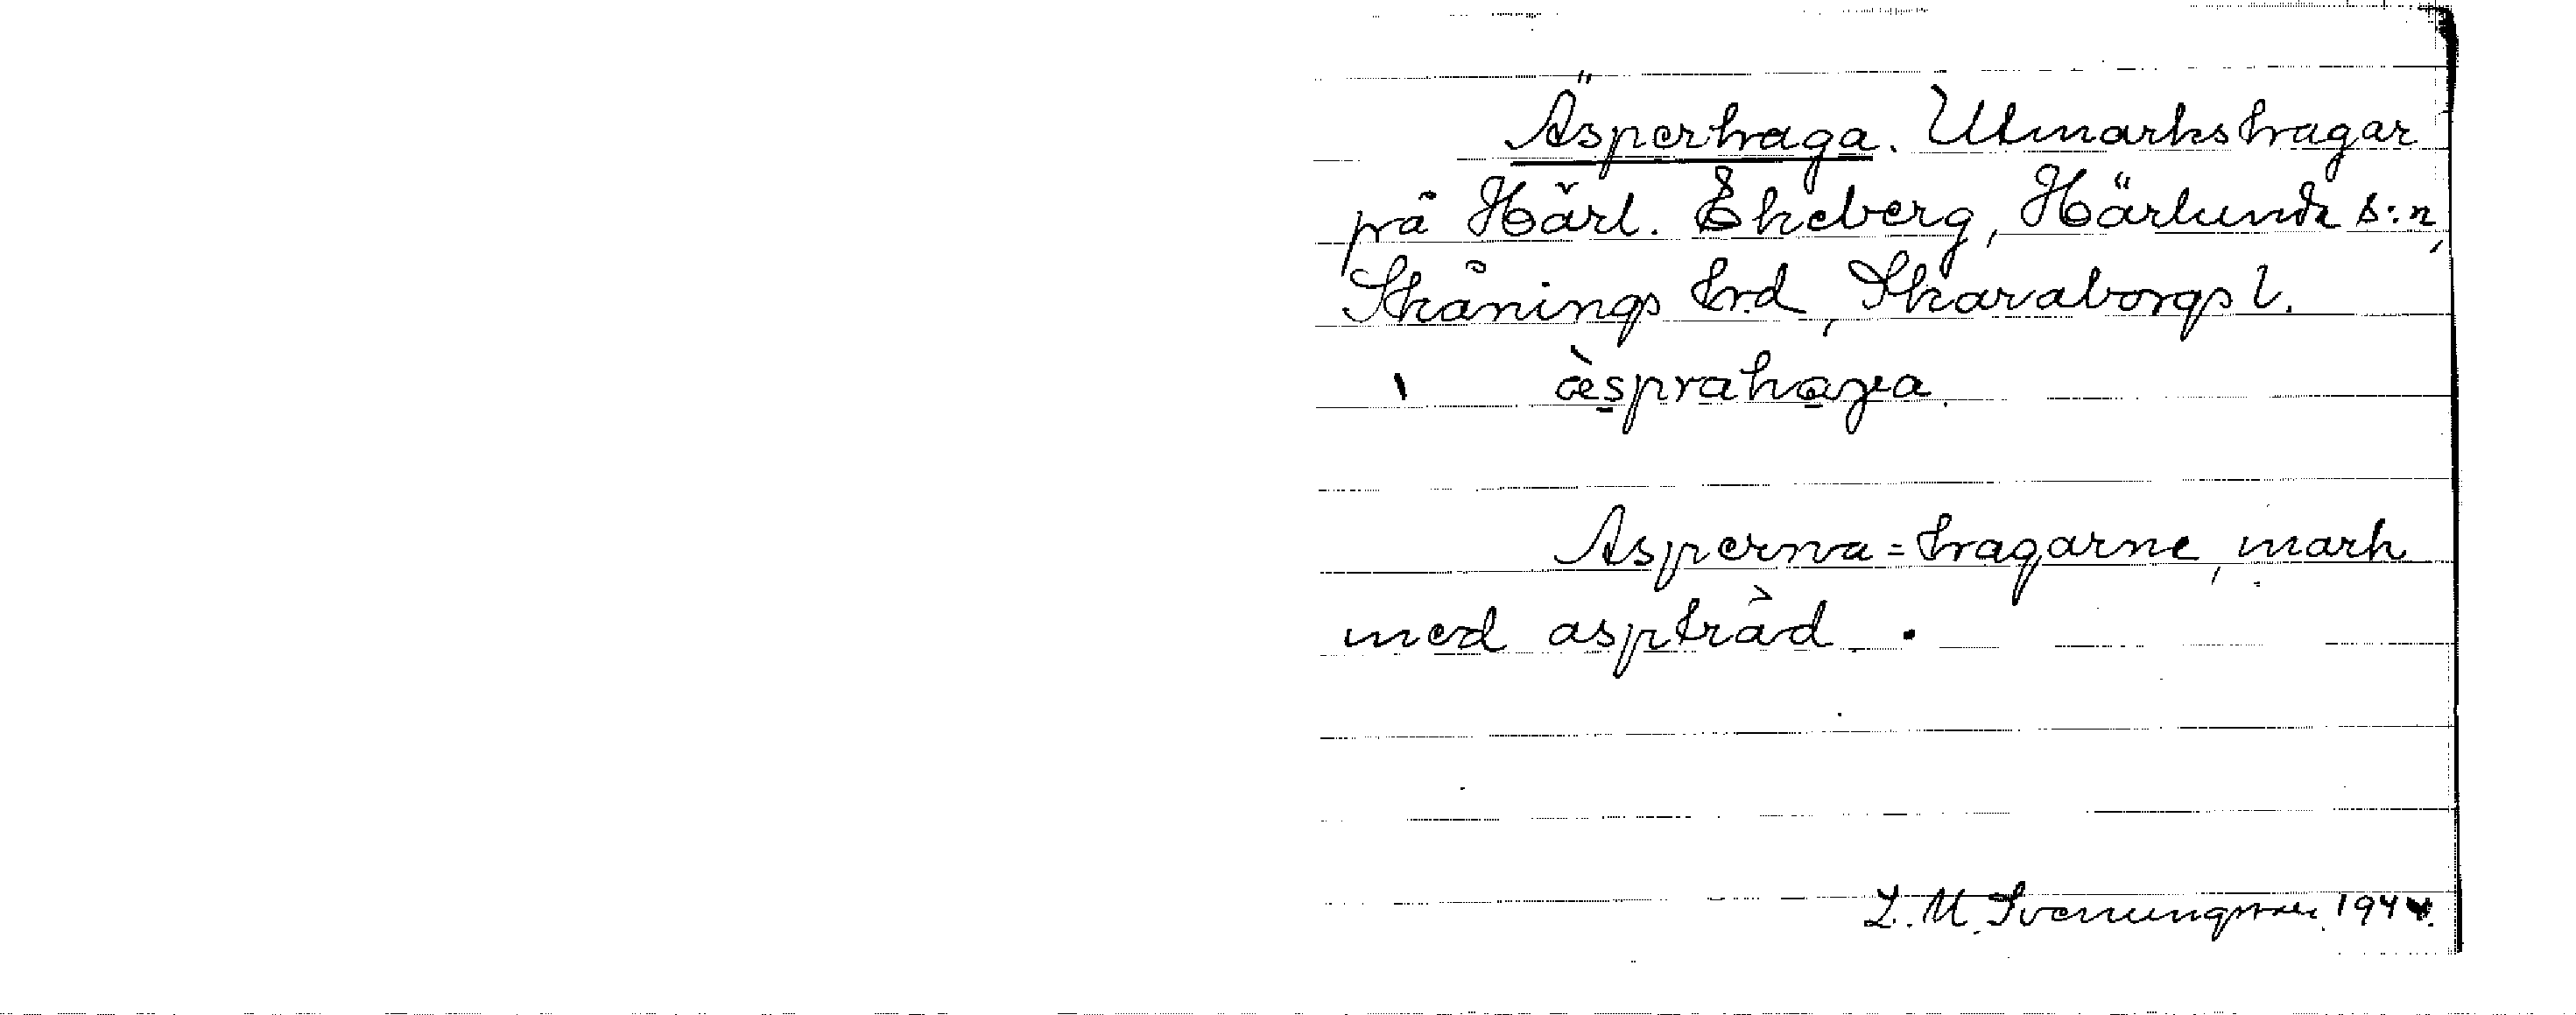 Äsperhaga. Utmarkshagar
på Härl. Ekeberg, Härlunda s:n,
Skånings hrd, Skaraborgs l.
æ̀sprahaga.
Asperna = hagarne, mark
med aspträd.
L. M. Svenungsson 1944.